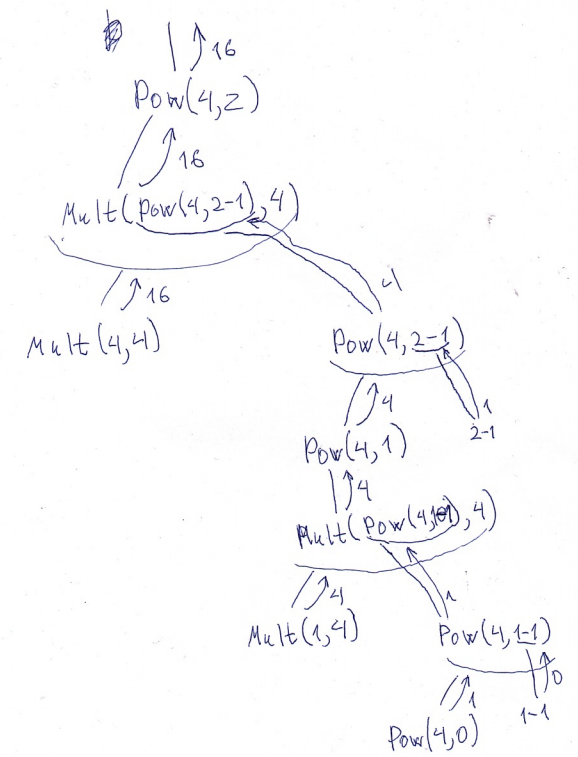 16
Pow(4,2)
16
Mult(Pow(4,2-1),4)
16
Mult(4,4)
4
Pow(4,2-1)
4
1
2-1
Pow(4,1)
4
Mult(Pow(4,1-1),4)
4
1
Mult(1,4)
Pow(4,1-1)
1
0
1-1
Pow(4,0)